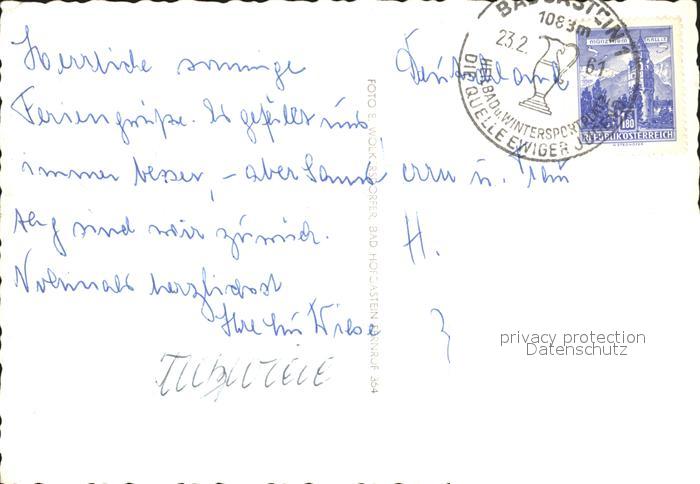 Herrliche sonnige
Feriengrüße. Es gefällt uns
immer besser, – aber Samstag
sind wir zurück.
Nochmals herzlichst
Ihre
Deutschland
H.
FOTO B. WOLKERSDORFER, BAD HOFGASTEIN FERNRUF 364
BADGASTEIN 1
1083m
23.2. 61
HEILBAD u. WINTERSPORTPLATZ
DIE QUELLE EWIGER
MÜNZTURM HALL i.T.
S 1.80
REPUBLIK ÖSTERREICH
privacy protection
Datenschutz